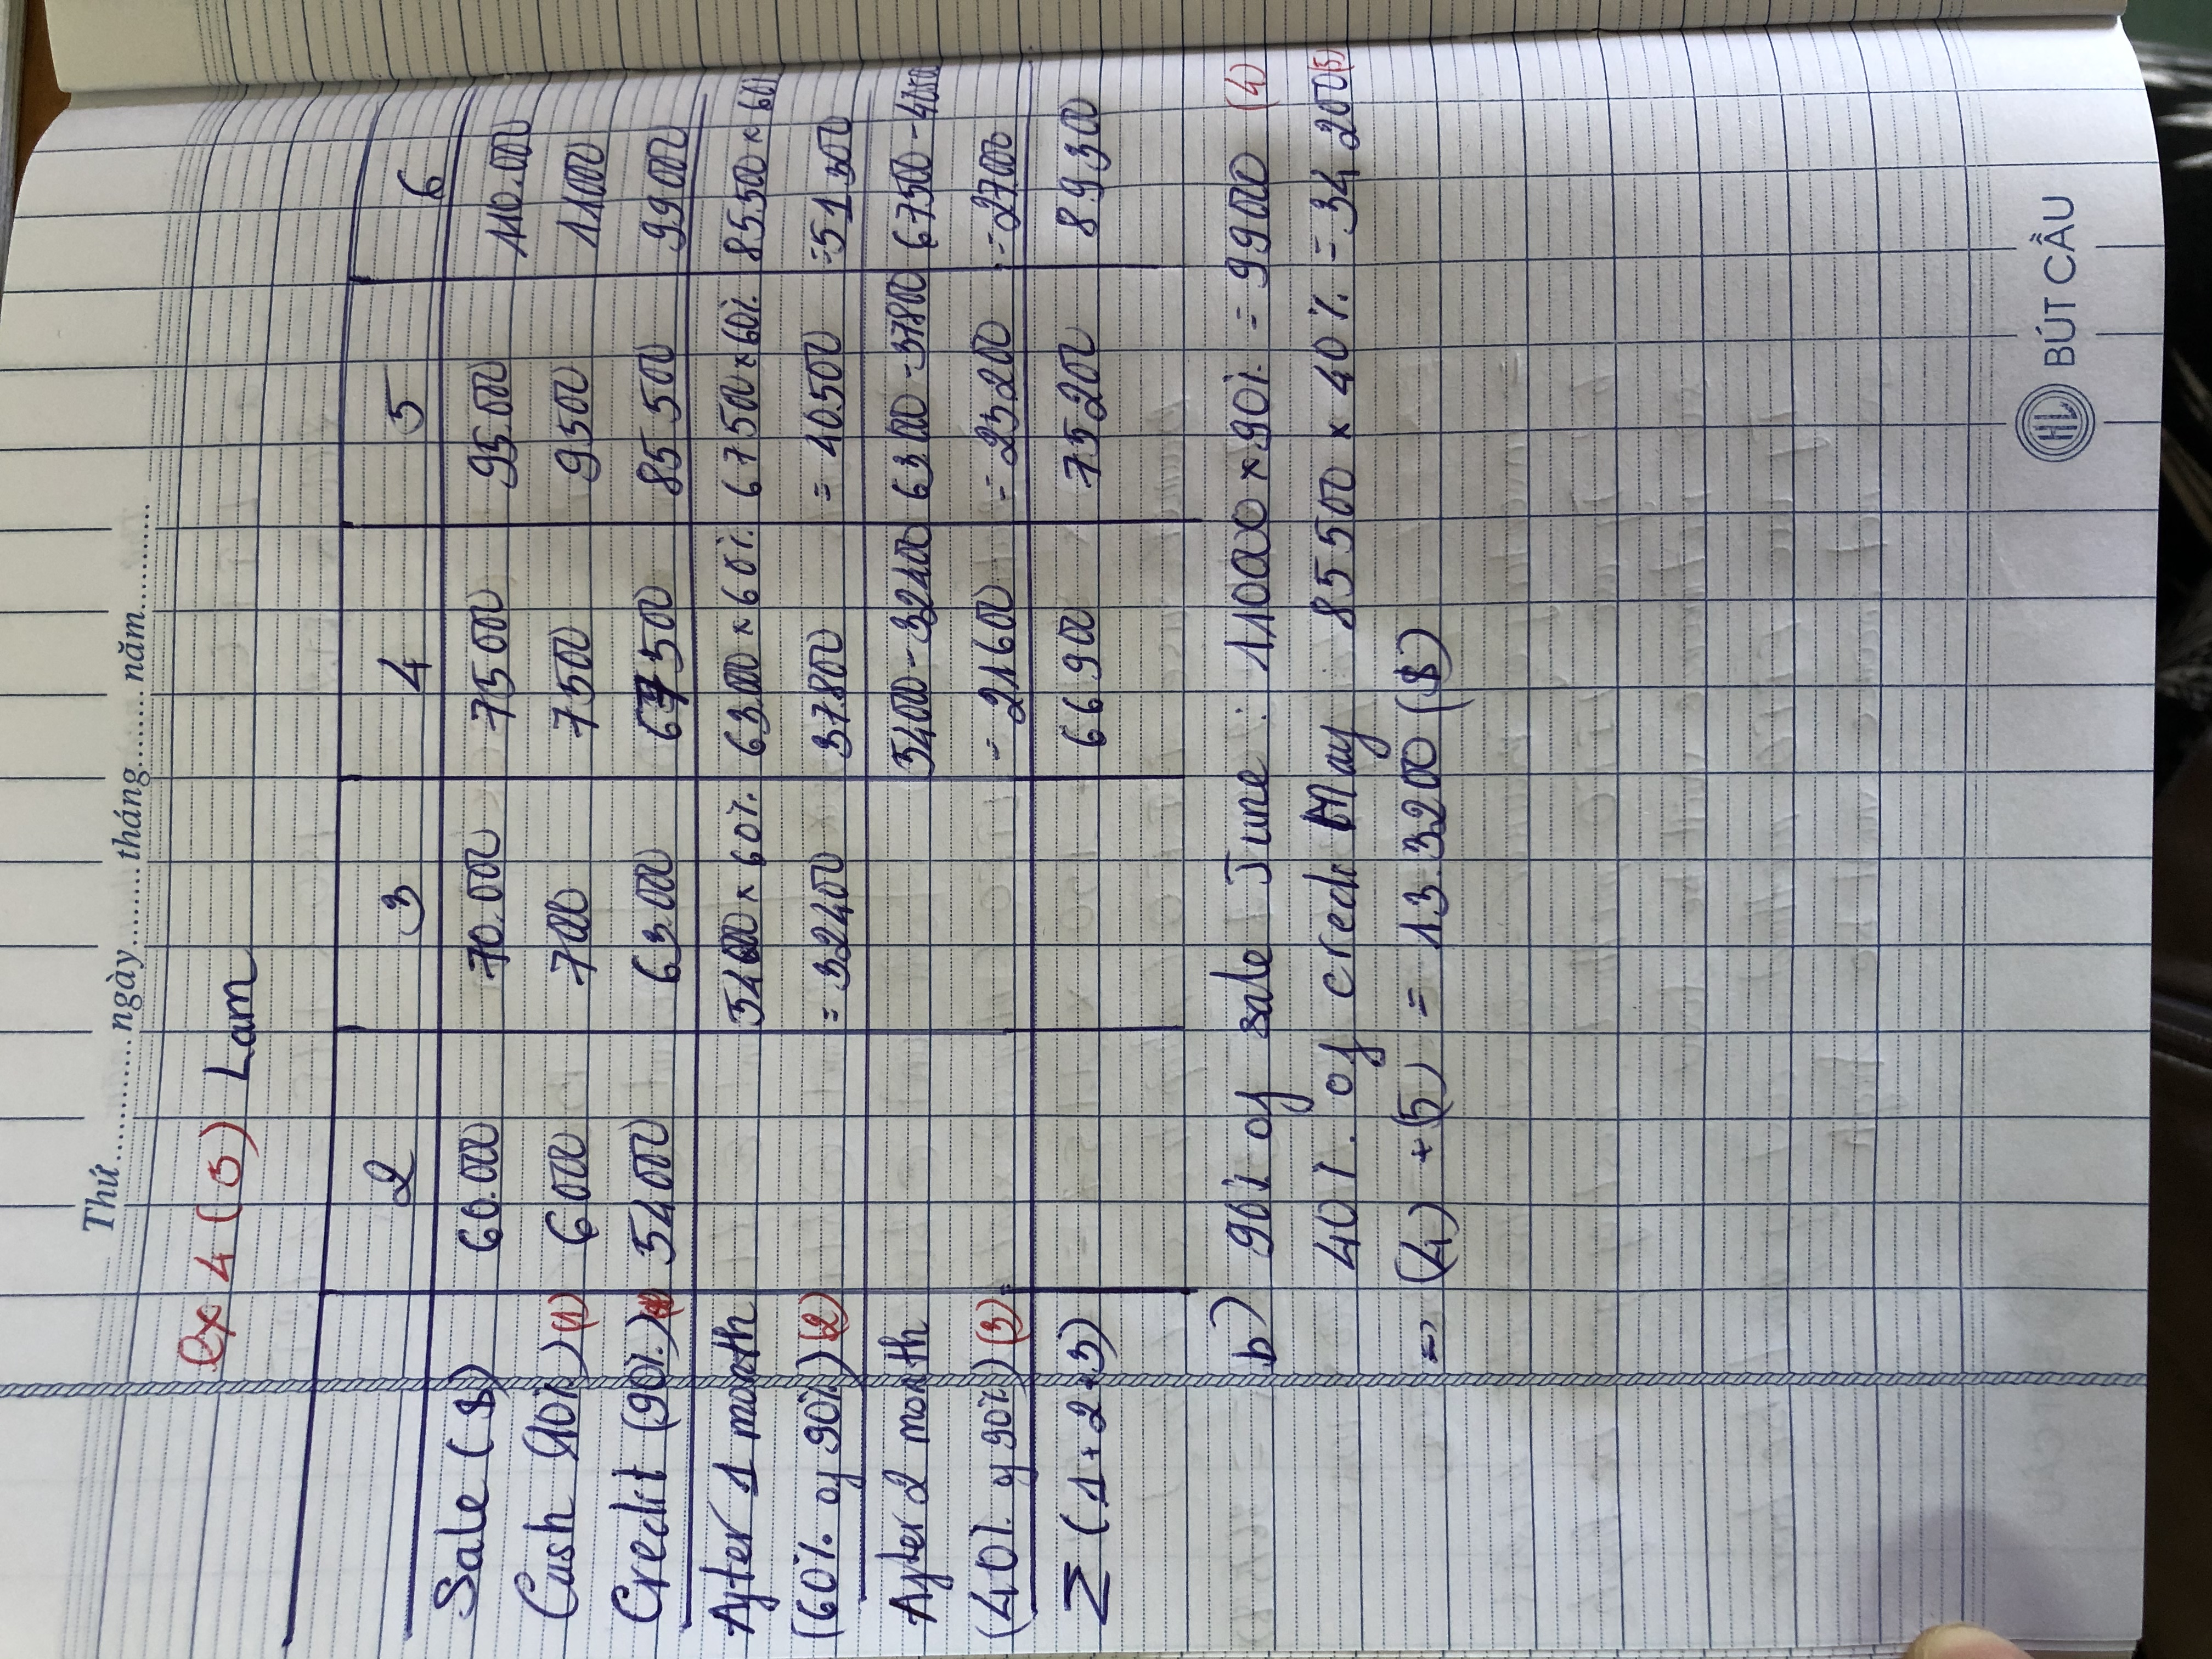 Thứ............ngày............tháng............năm............
ex 4 (5) Lam
2 3 4 5 6
Sale ($) 60.000 70.000 75000 95.000 110.000
Cash (10%) (1) 6000 7000 7500 9500 11000
Credit (90%) 54000 63000 67500 85500 99000
After 1 month 54000 × 60% 63000 × 60% 67500 × 60% 85500 × 60%
(60% of 90%) (2) = 32400 37800 = 40500 = 51300
After 2 month 5400 - 32400 63000 - 37800 67500 - 4050
(40% of 90%) (3) = 21600 = 25200 = 27000
Σ (1+2+3) 66900 75200 89300
b) 90% of sale June : 110000 × 90% = 99000 (4)
40% of credit May 85500 × 40% = 34200 (5)
=> (4) + (5) = 133200 ($)
HL BÚT CẦU